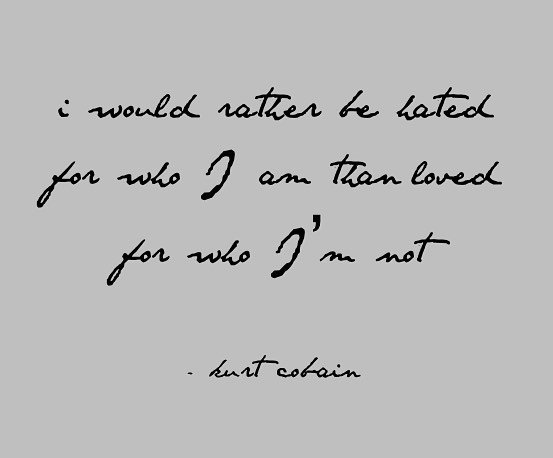 i would rather be hated
for who I am than loved
for who I'm not
- kurt cobain